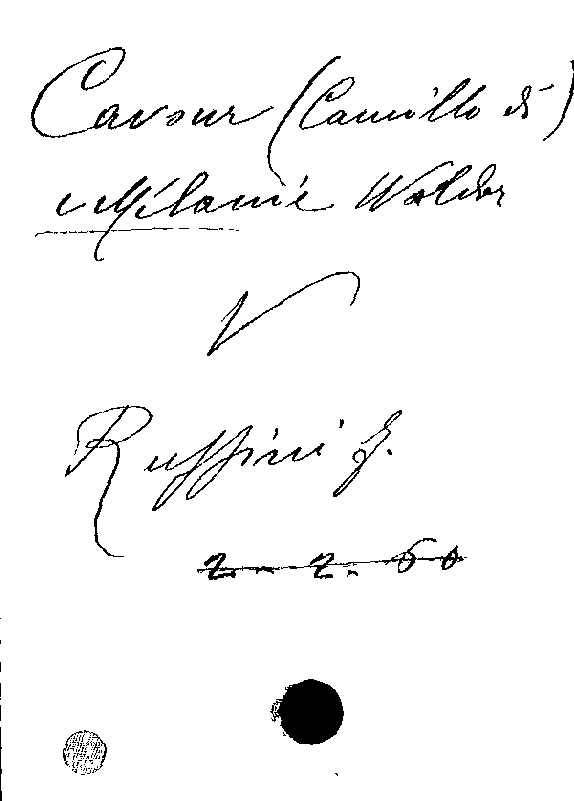 Cavour (Camillo di)
e Mélanie Waldor
V
Ruffini F.
2. - 2. 60